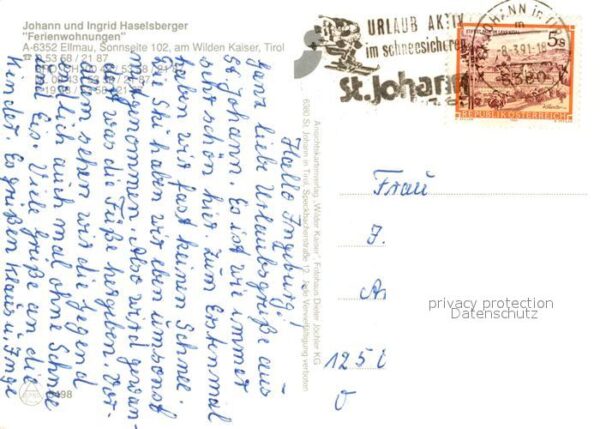 Johann und Ingrid Haselsberger
"Ferienwohnungen"
A-6352 Ellmau, Sonnseite 102, am Wilden Kaiser, Tirol
Hallo Ingeburg!
Ganz liebe Urlaubsgrüße aus
St. Johann. Es ist wie immer
sehr schön hier. Zum Erstenmal
haben wir fast keinen Schnee.
Die Ski haben wir eben umsonst
mitgenommen. Also wird gewan-
dert was die Füße hergeben.
sehen wir die Gegend
auch mal ohne Schnee
und Eis. Viele Grüße an die
Kinder. Es grüßen Klaus u. Inge
Ansichtskartenverlag „Wilder Kaiser", Fotohaus Dieter Jöchler KG
6380 St. Johann in Tirol, Speckbacherstraße 12, Jede Vervielfältigung verboten
URLAUB AKTIV
im schneesicheren
St. Johann
ST. JOHANN in TIROL
-8.3.91-18
6380
5 S
REPUBLIK ÖSTERREICH
Frau
J.
A
privacy protection
Datenschutz
125
498